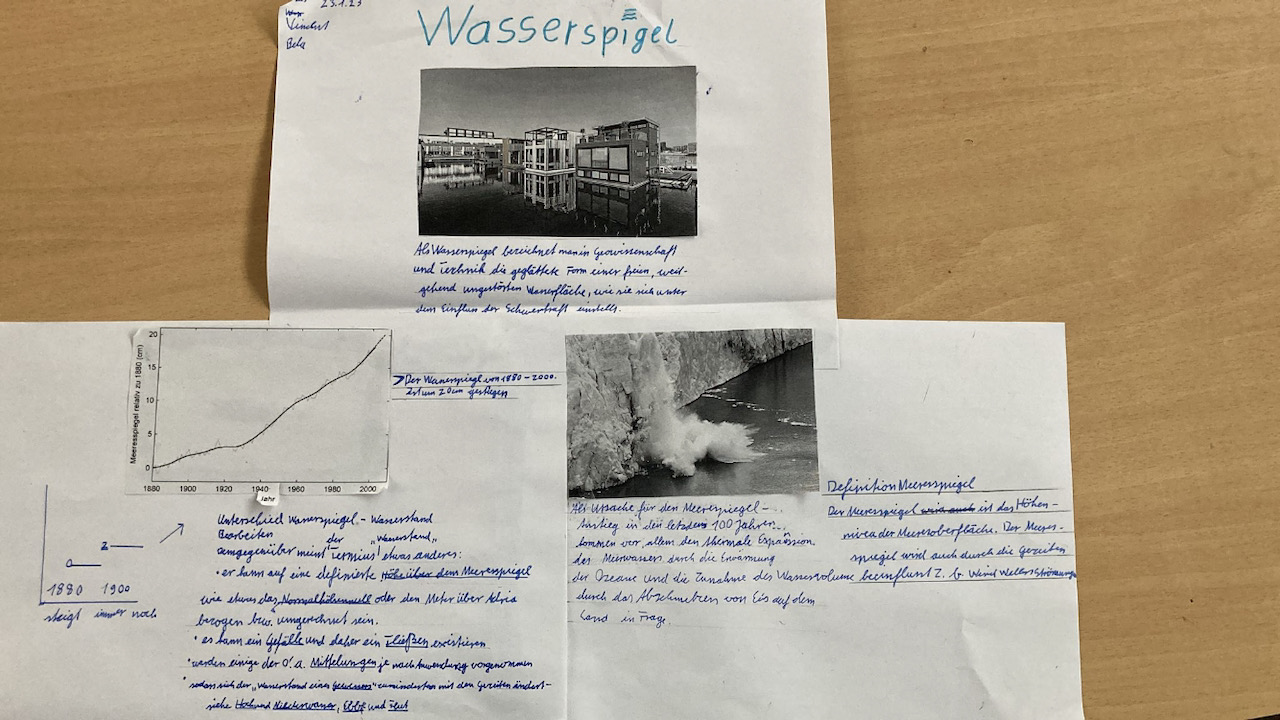 23.1.23
Vincent
Bela
Wasserspigel
Als Wasserspiegel bezeichnet man in Geowissenschaft
und Technik die geglättete Form einer freien, weit-
gehend ungestörten Wasserfläche, wie sie sich unter
dem Einfluss der Schwerkraft einstellt.
Meeresspiegel relativ zu 1880 (cm)
20
15
10
5
0
1880 1900 1920 1940 1960 1980 2000
Jahr
> Der Wasserspiegl von 1880 - 2000.
ist um 20cm gestiegen
0 2
1880 1900
steigt immer noch
Unterschied Wasserspiegel - Wasserstand
Bearbeiten
demgegenüber meint der Terminus "Wasserstand" etwas anderes:
• er kann auf eine definierte Höhe über dem Meeresspiegel
wie etwas das Normalhöhennull oder den Meter über Adria
bezogen bzw. umgerechnet sein.
• er kann ein Gefälle und daher ein Fließen existieren
• werden einige der o. a. Mittelungen je nach Anwendung vorgenommen
• sodass sich der "Wasserstand eines Gewässers" zumindest mit den Gezeiten ändert -
siehe Hoch und Niederwasser, Ebbe und Flut
Als Ursache für den Meeresspiegel-
Anstieg in den letzten 100 Jahren
kommen vor allem den thermale Expansion
des Meerwassers durch die Erwärmung
der Ozeane und die Zunahme des Wasservolume
durch das Abschmelzen von Eis auf dem
Land in Frage.
Definition Meerespiegel
Der Meerespiegel wird auch ist das Höhen-
niveau der Meeresoberfläche. Der Meeres-
spiegel wird auch durch die Gezeiten
beeinflusst z. b. Wind Wellen Strömungen